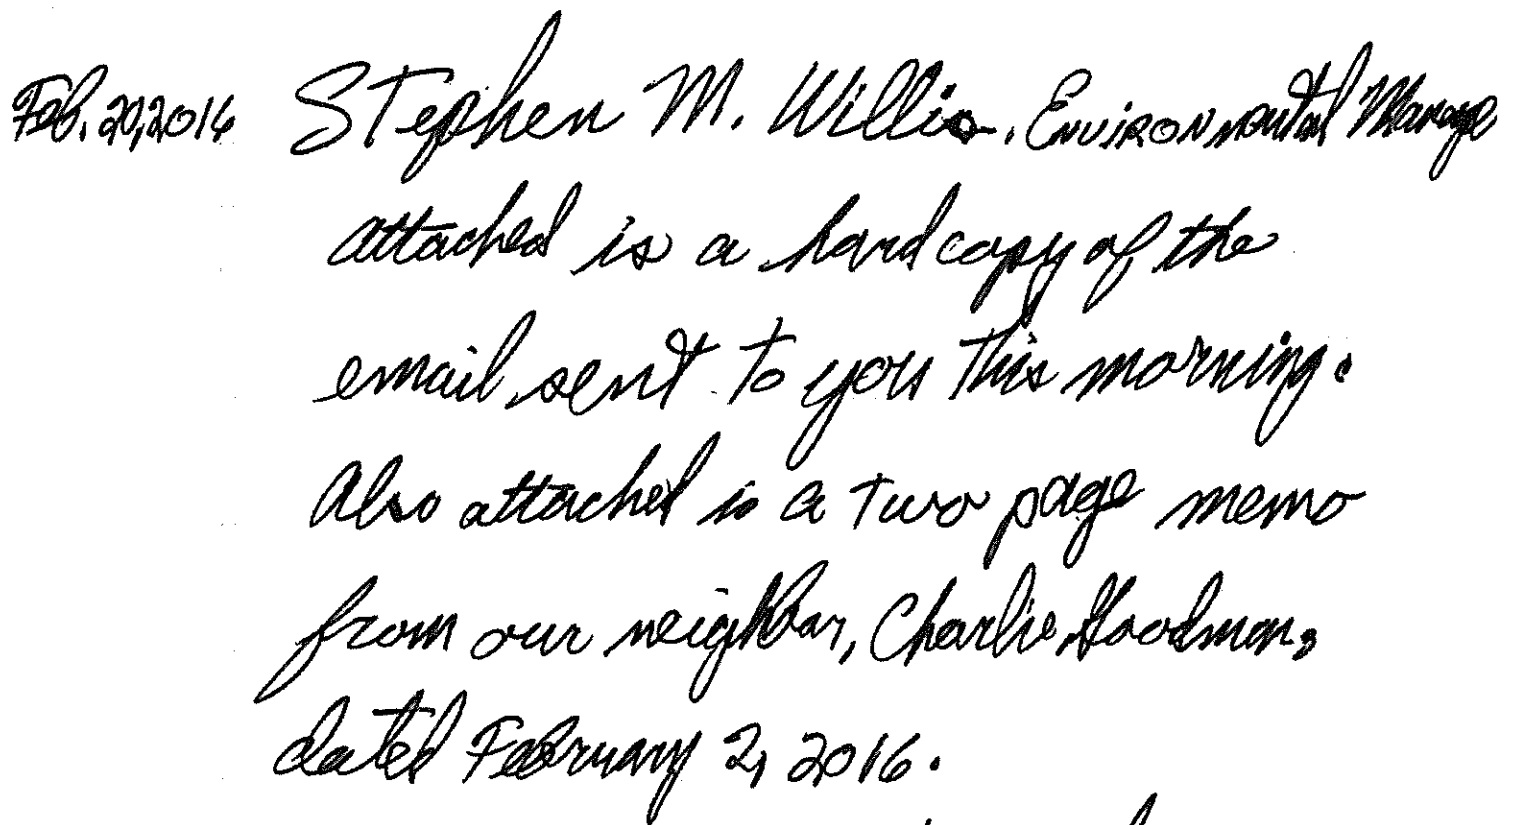 Feb. 20, 2016 Stephen M. Willis. Environmental Manage
attached is a hard copy of the
email sent to you this morning.
Also attached is a two page memo
from our neighbor, Charlie Goodman,
dated February 2, 2016.